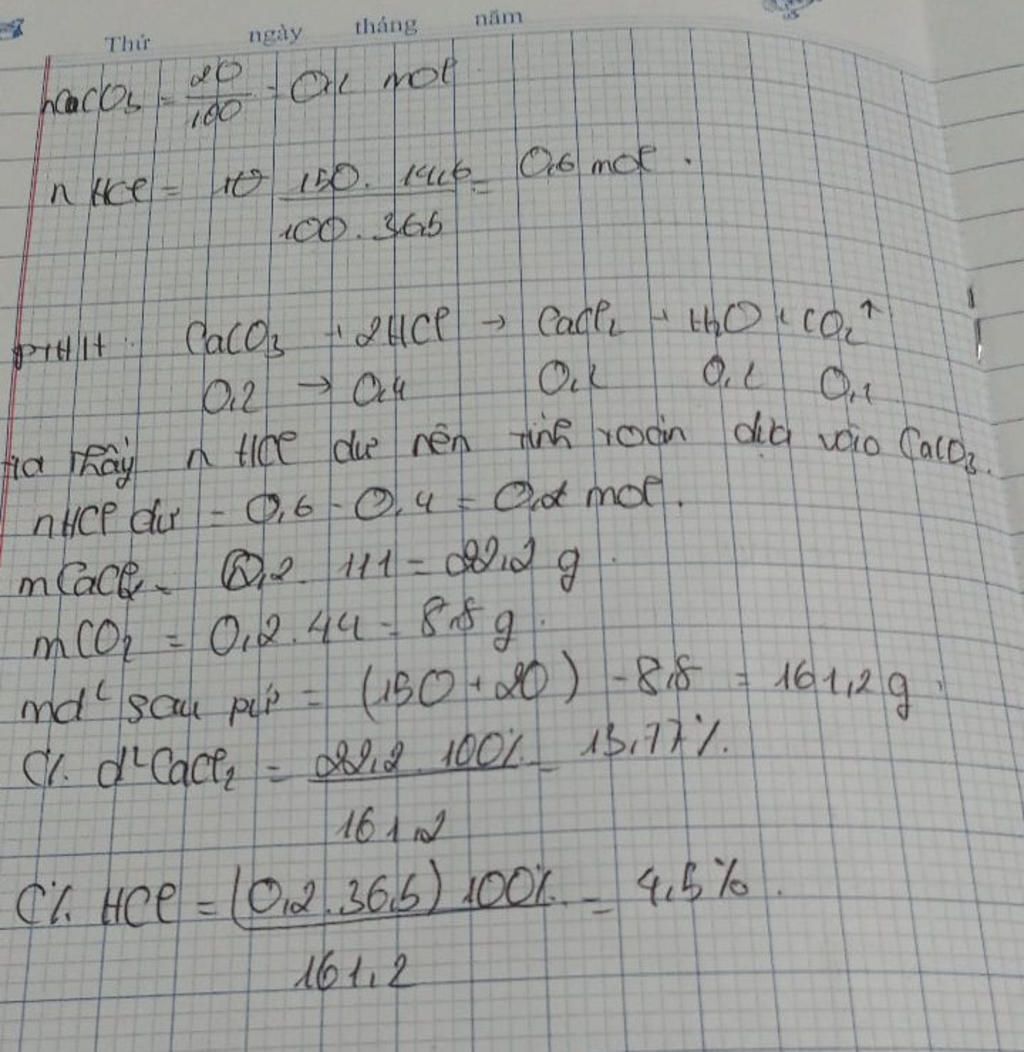 Thứ ngày tháng năm
nCaCO₃ = 20/100 = 0,2 mol
n HCl = 150. 14,6 / 100.36,5 = 0,6 mol.
PTHH: CaCO₃ + 2HCl → CaCl₂ + H₂O + CO₂↑
0,2 → 0,4 0,2 0,2 0,2
ta thấy n HCl dư nên tính toán dựa vào CaCO₃.
nHCl dư = 0,6 - 0,4 = 0,2 mol.
mCaCl₂ = 0,2. 111 = 22,2 g.
mCO₂ = 0,2.44 = 8,8 g.
md² sau pứ = (150 + 20) - 8,8 = 161,2 g.
C% d²CaCl₂ = 22,2. 100% / 161,2 = 13,77%.
C% HCl = (0,2.36,5) 100% / 161,2 = 4,5%.